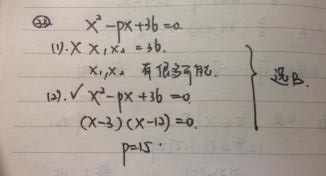 ㉓ x²-px+36=0.
(1). X x₁x₂=36.
x₁,x₂ 有很多可能.
(2). ✓ x²-px+36=0
(x-3)(x-12)=0.
p=15.
选B.